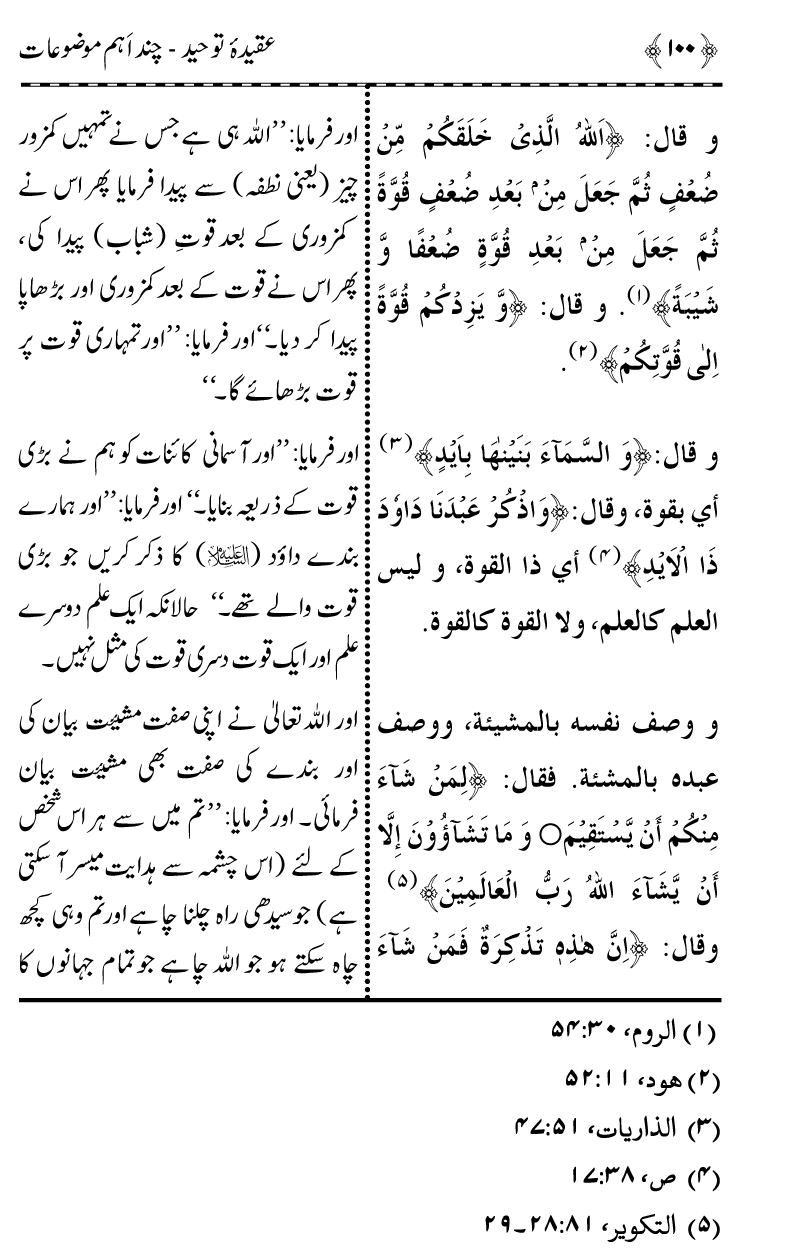 ﴿۱۰۰﴾
عقیدۂ توحید - چند اَہم موضوعات
و قال: ﴿اَللهُ الَّذِیْ خَلَقَکُمْ مِّنْ
ضُعْفٍ ثُمَّ جَعَلَ مِنْۢ بَعْدِ ضُعْفٍ قُوَّةً
ثُمَّ جَعَلَ مِنْۢ بَعْدِ قُوَّةٍ ضُعْفًا وَّ
شَیْبَةً﴾(۱). و قال: ﴿وَّ یَزِدْکُمْ قُوَّةً
اِلٰی قُوَّتِکُمْ﴾(۲).
و قال:﴿وَ السَّمَآءَ بَنَیْنٰهَا بِاَیْدٍ﴾(۳)
أي بقوة، وقال:﴿وَاذْکُرْ عَبْدَنَا دَاوٗدَ
ذَا الْاَیْدِ﴾(۴) أي ذا القوة، و لیس
العلم کالعلم، ولا القوة کالقوة.
و وصف نفسه بالمشیئة، ووصف
عبده بالمشئة. فقال: ﴿لِمَنْ شَآءَ
مِنْکُمْ أَنْ یَّسْتَقِیْمَ○ وَ مَا تَشَآؤُوْنَ إِلَّا
أَنْ یَّشَآءَ اللهُ رَبُّ الْعَالَمِیْنَ﴾(۵)
وقال: ﴿اِنَّ هٰذِهٖ تَذْکِرَةٌ فَمَنْ شَآءَ
اور فرمایا: ’’اللہ ہی ہے جس نے تمہیں کمزور
چیز (یعنی نطفہ) سے پیدا فرمایا پھر اس نے
کمزوری کے بعد قوتِ (شباب) پیدا کی،
پھر اس نے قوت کے بعد کمزوری اور بڑھاپا
پیدا کر دیا۔‘‘ اور فرمایا: ’’اور تمہاری قوت پر
قوت بڑھائے گا۔‘‘
اور فرمایا: ’’اور آسمانی کائنات کو ہم نے بڑی
قوت کے ذریعہ بنایا۔‘‘ اور فرمایا: ’’اور ہمارے
بندے داؤد (علیہ السلام) کا ذکر کریں جو بڑی
قوت والے تھے۔‘‘ حالانکہ ایک علم دوسرے
علم اور ایک قوت دسری قوت کی مثل نہیں۔
اور اللہ تعالیٰ نے اپنی صفت مشیّت بیان کی
اور بندے کی صفت بھی مشیّت بیان
فرمائی۔ اور فرمایا: ’’تم میں سے ہر اس شخص
کے لئے (اس چشمہ سے ہدایت میسر آ سکتی
ہے) جو سیدھی راہ چلنا چاہے اور تم وہی کچھ
چاہ سکتے ہو جو اللہ چاہے جو تمام جہانوں کا
(۱) الروم، ۳۰:۵۴
(۲) هود، ۱۱:۵۲
(۳) الذاریات، ۵۱:۴۷
(۴) ص، ۳۸:۱۷
(۵) التکویر، ۸۱:۲۸۔۲۹